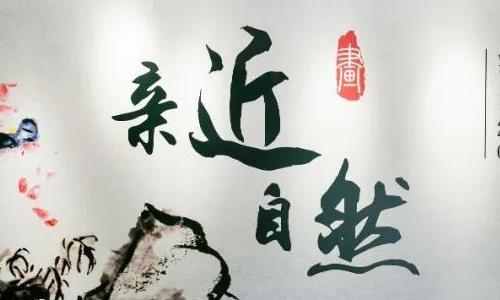 亲近
自然
畫